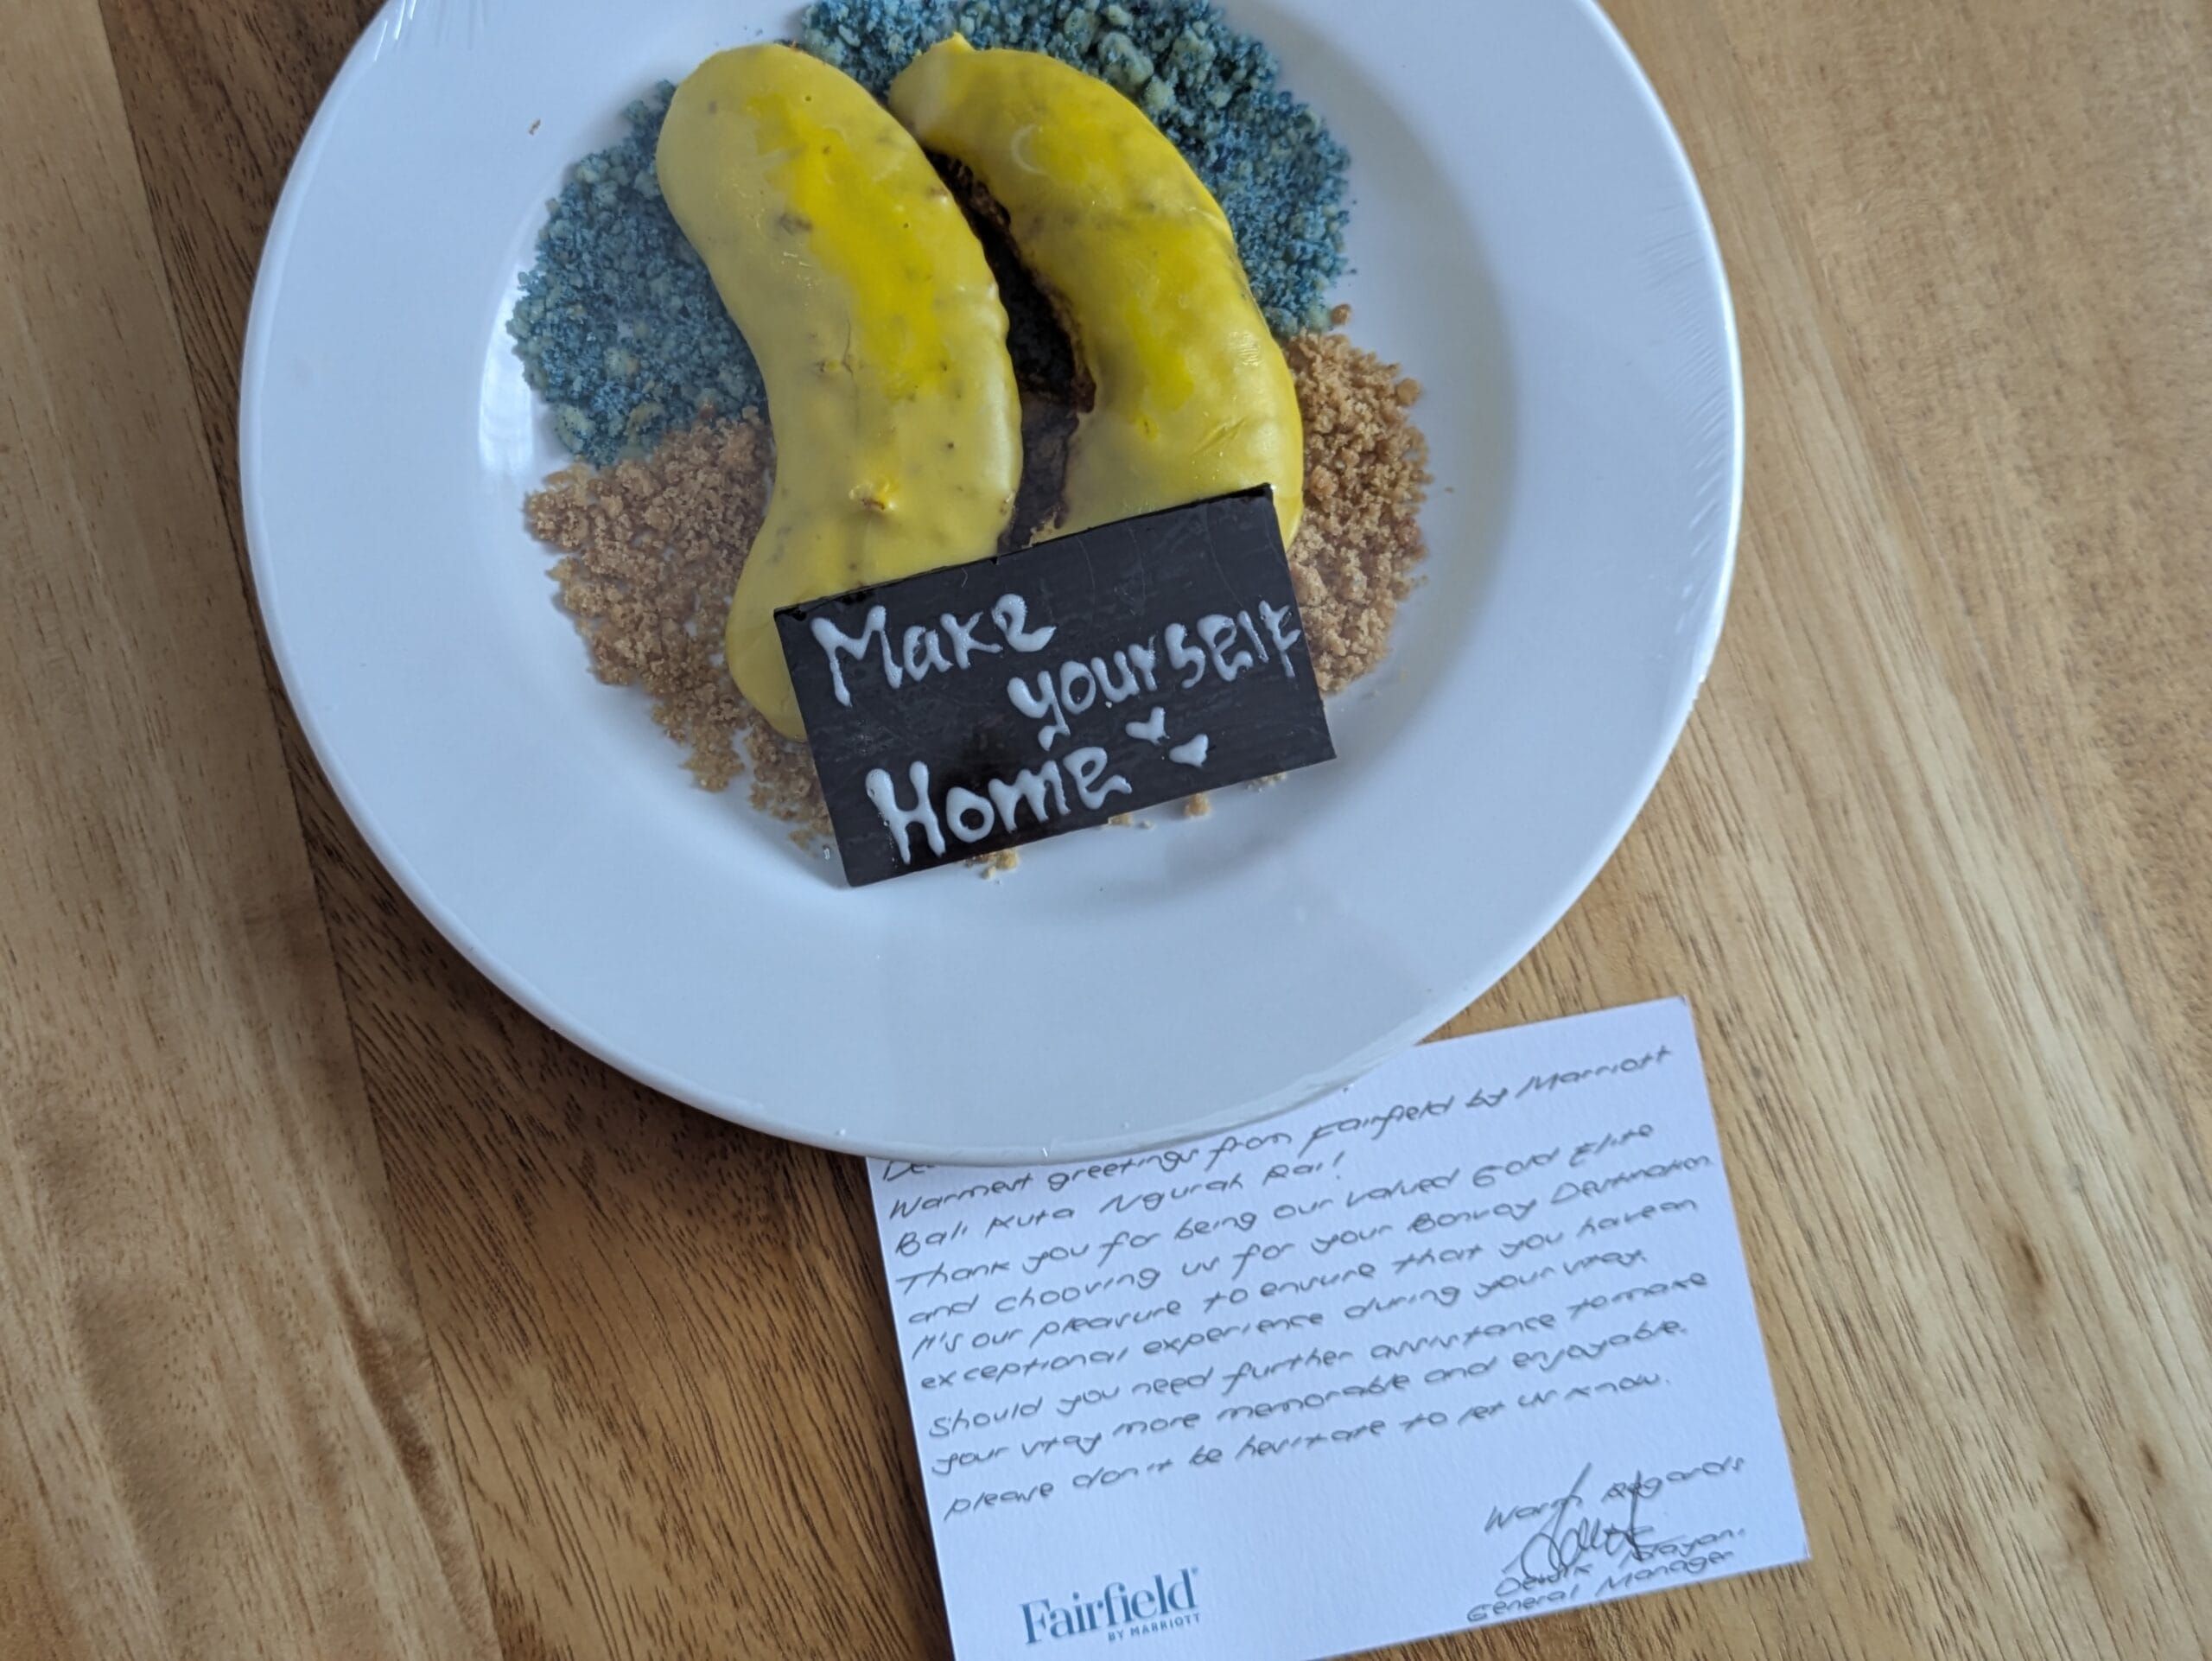 Make
yourself
Home
Warmest greetings from Fairfield by Marriott
Bali Kuta Ngurah Rai!
Thank you for being our valued Gold Elite
and choosing us for your Bonvoy Destination
It's our pleasure to ensure that you have an
exceptional experience during your stay.
Should you need further assistance to make
your stay more memorable and enjoyable.
please don't be hesitate to let us know.
Warm Regards
General Manager
Fairfield
BY MARRIOTT